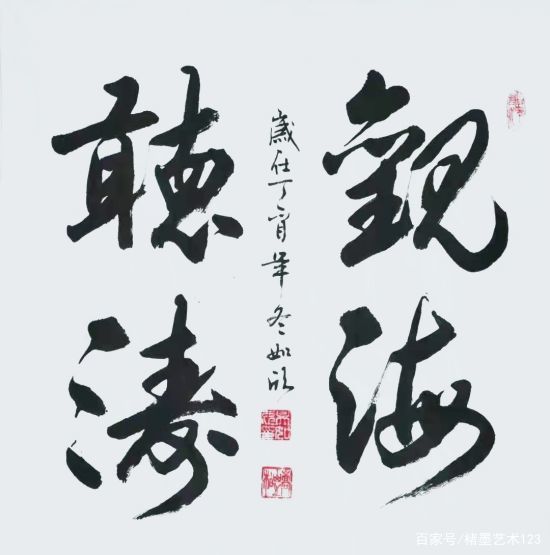 觀海
聽濤
歲在丁酉年冬如欣
百家号/楮墨艺术123